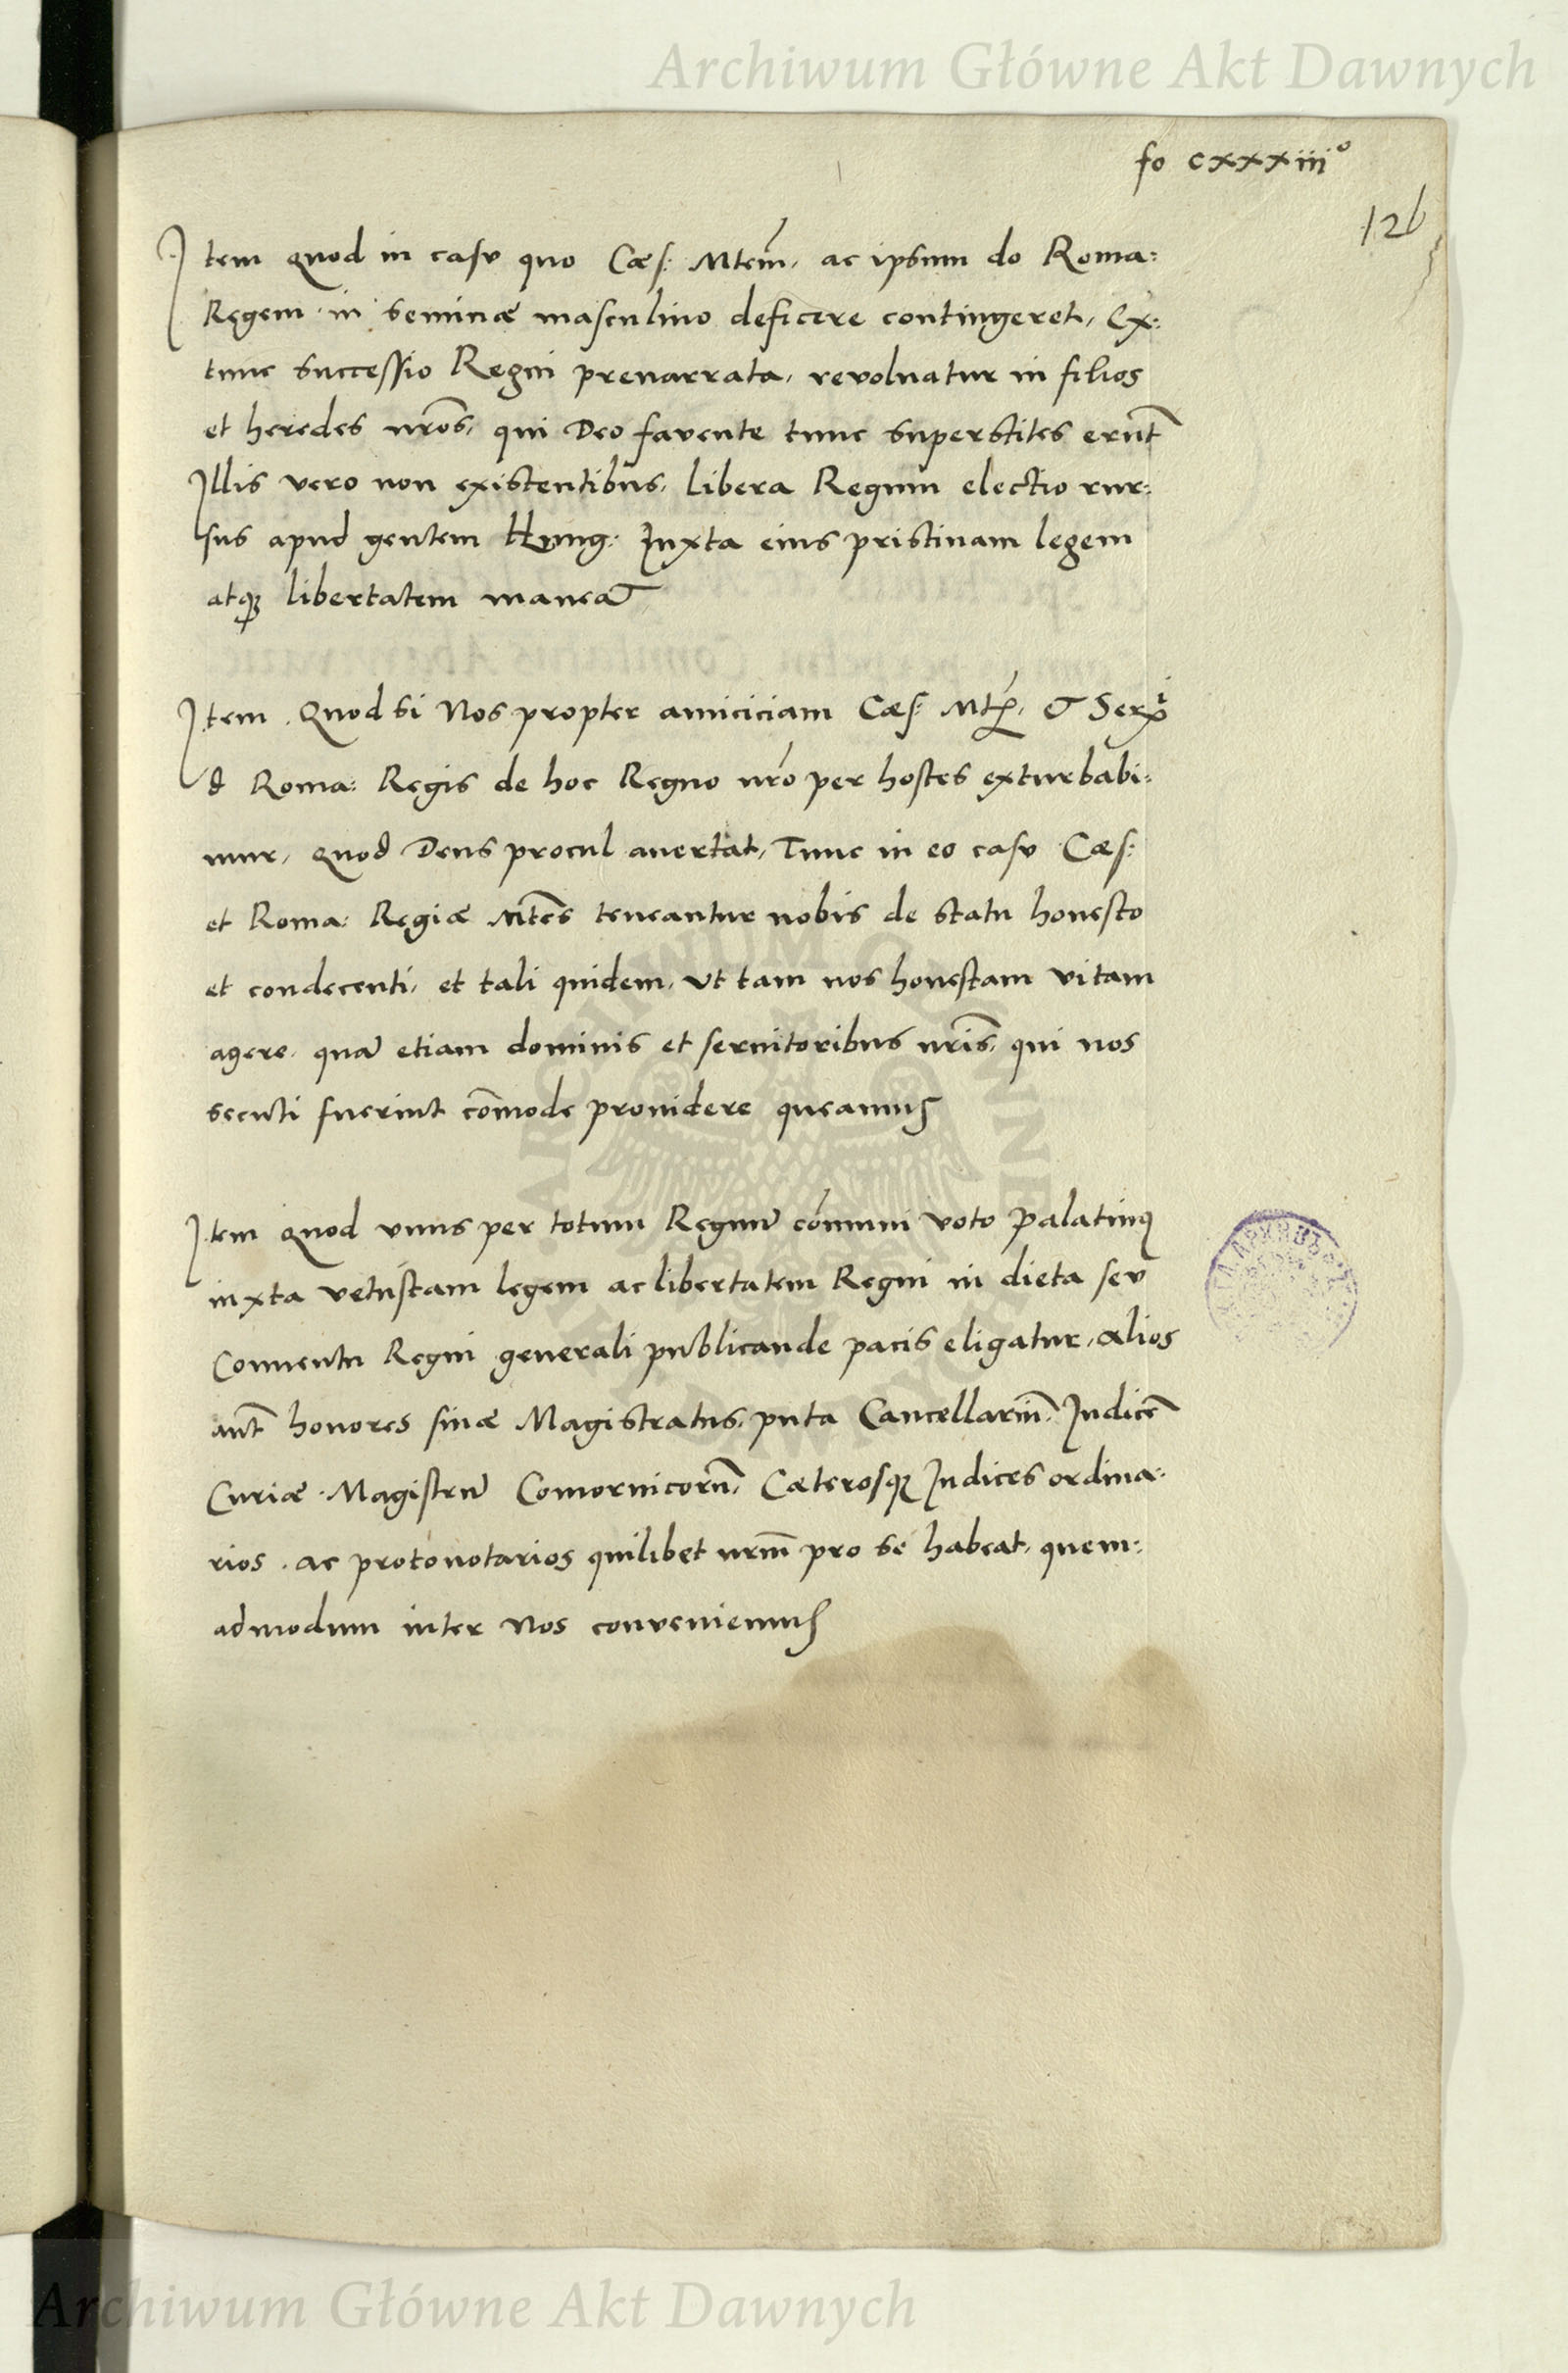 Archiwum Główne Akt Dawnych
fo cxxxiiiº
126
Item quod in casv quo Cæs: Mtem̃, ac ipsum do Roma:
Regem in seminæ masculino deficere contingeret, Ex:
tunc successio Regni prenarrata, revoluatur in filios
et heredes nr̃os, qui Deo favente tunc superstites erunt̃
Illis vero non existentibus, libera Regum electio rur:
sus apud gentem Hung: Iuxta eius pristinam legem
atqꝫ libertatem maneat
Item Quod si Nos propter amiciciam Cæs:
d Roma: Regis de hoc Regno nr̃o per hostes exturbabi:
mur, quod Deus procul auertat, Tunc in eo casv Cæs:
et Roma: Regiæ Mtẽs teneantur nobis de statu honesto
et condecenti, et tali quidem, vt tam nos honestam vitam
agere, quã etiam dominis et seruitoribus nr̃is, qui nos
secuti fuerint cõmode prouidere queamus
Item quod vnus per totum Regnũ cõmuni voto Palatinus
iuxta vetustam legem ac libertatem Regni in dieta sev
Conuentu Regni generali publicande pacis eligatur, Alios
aut̃ honores siuæ Magistratus, puta Cancellariũ, Iudicẽ
Curiæ, Magistrũ Comornicorũ, Cæterosqꝫ Iudices ordina:
rios, ac protonotarios quilibet nr̃m pro se habeat, quem:
admodum inter Nos conveniemus
Archiwum Główne Akt Dawnych